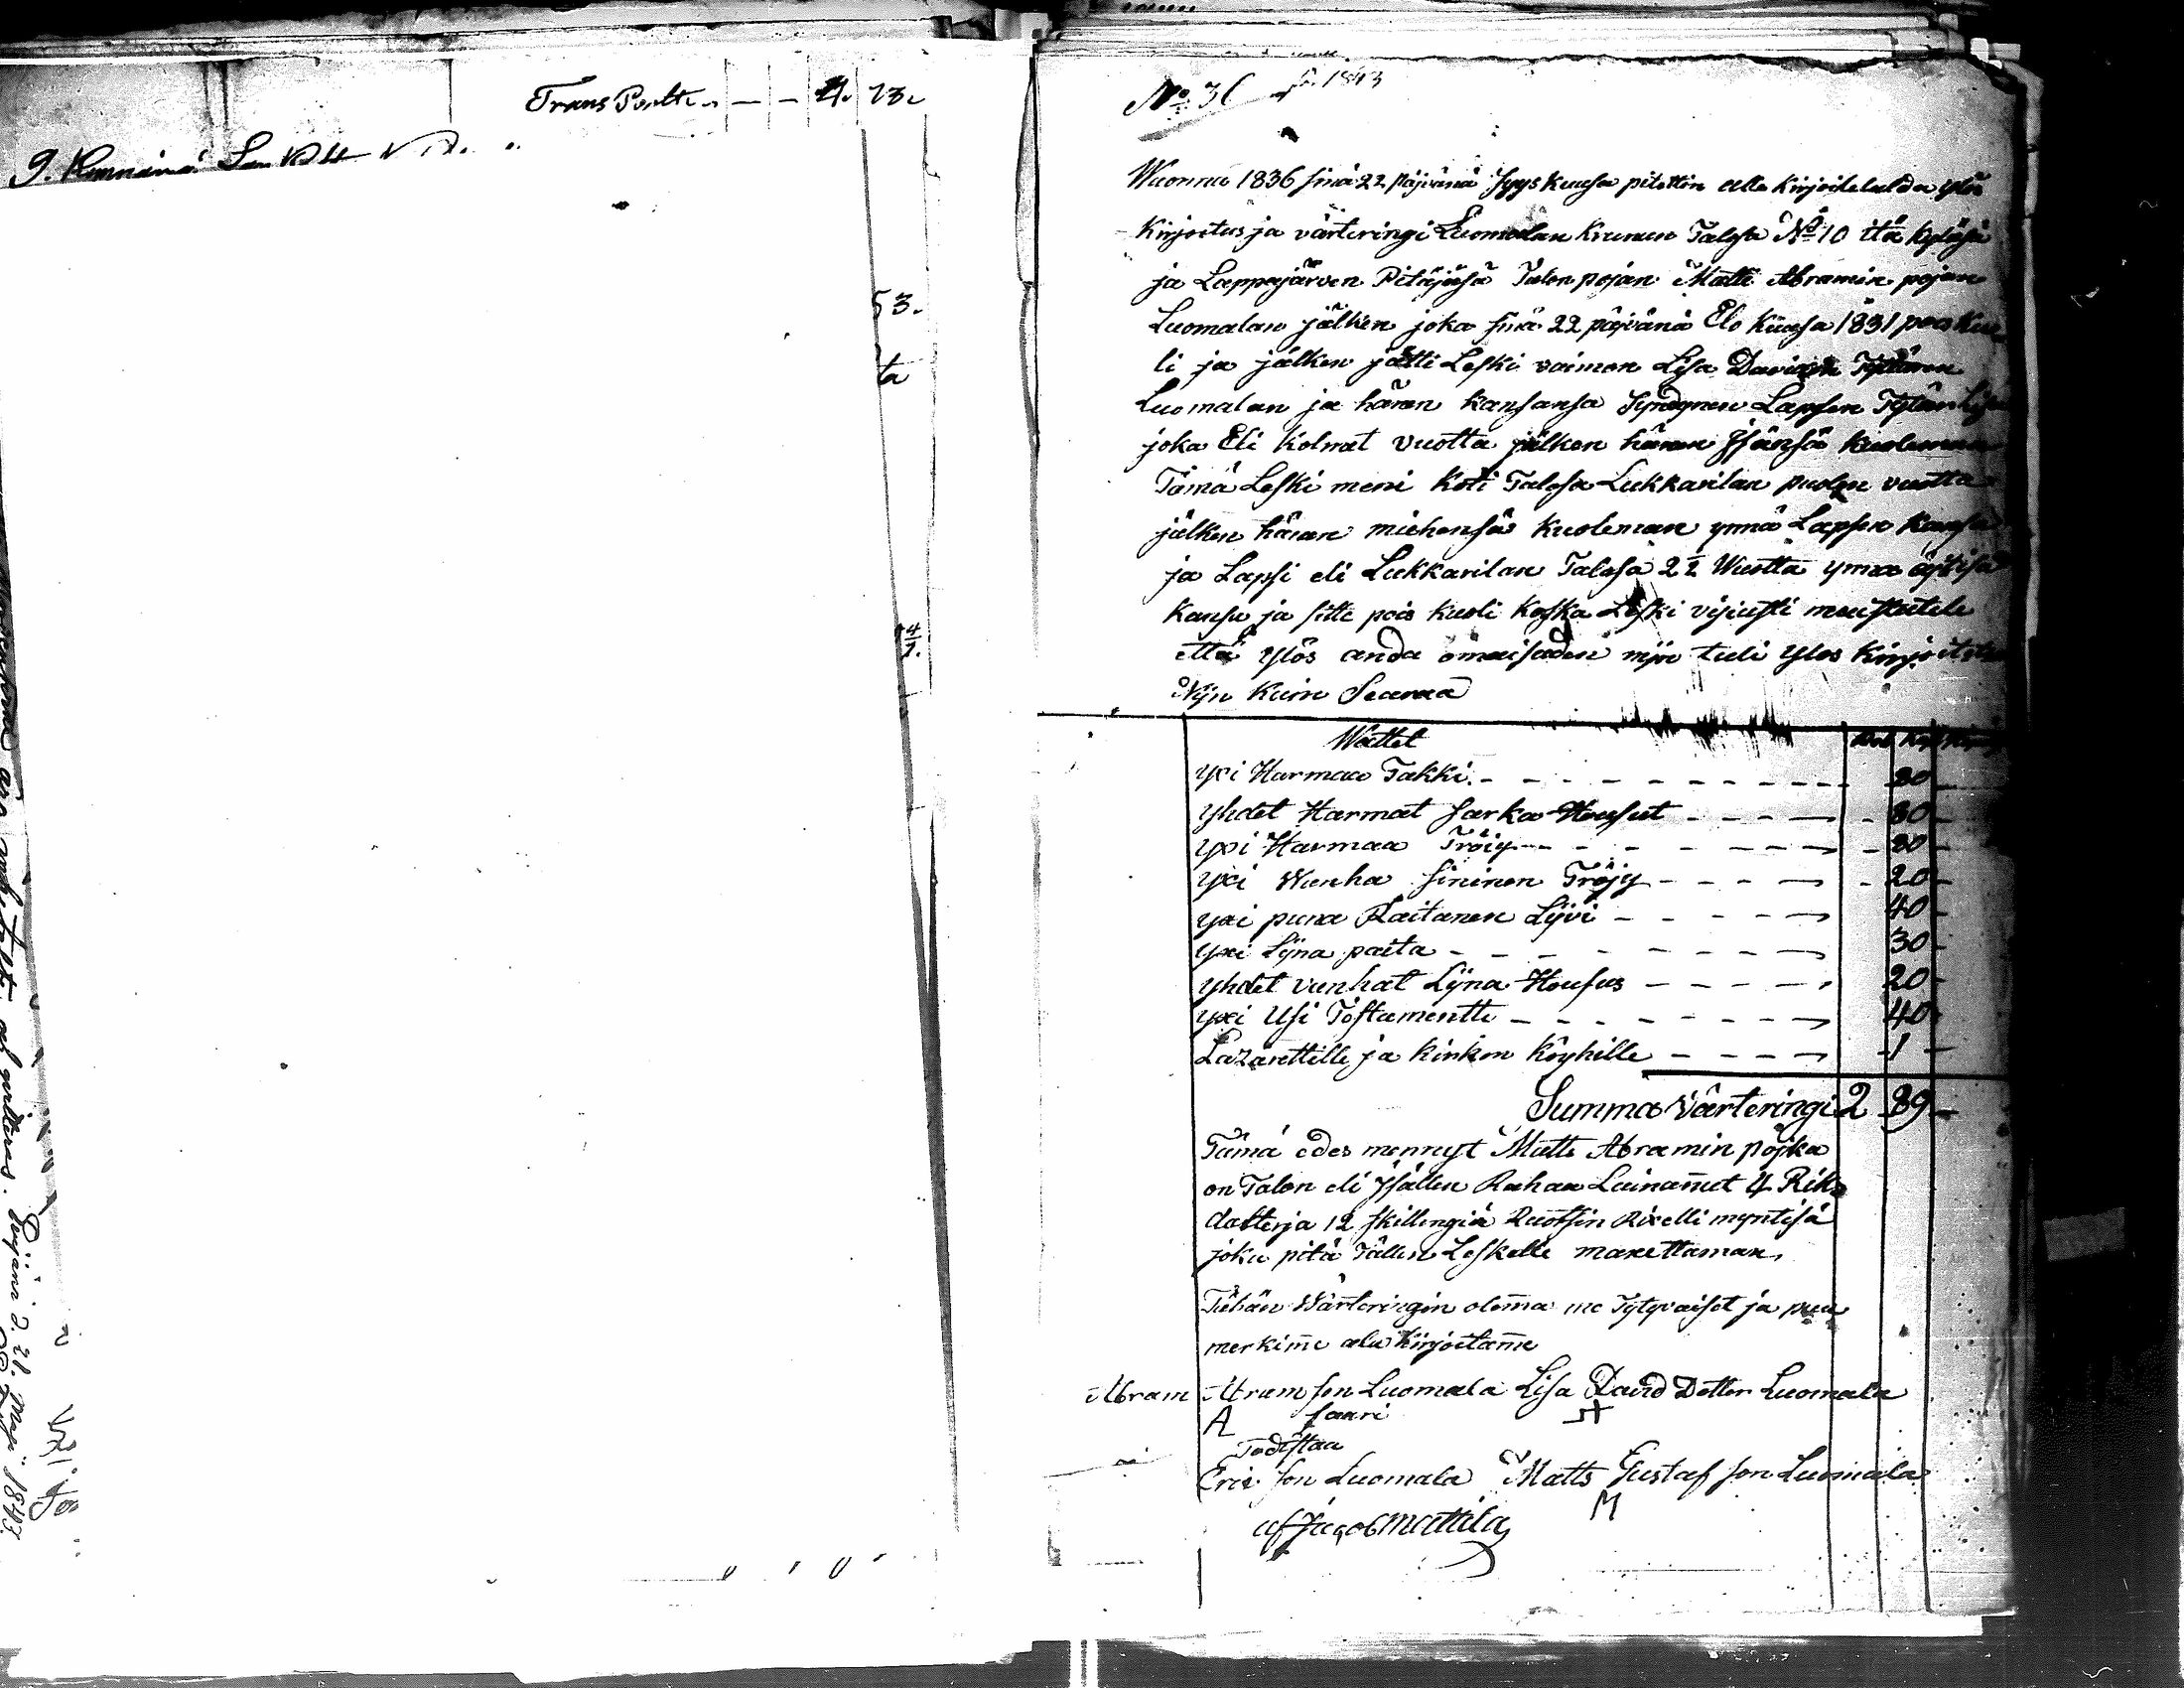 Trans Portt. — — 4. 23.
9.
53.
ta
4/1.
2. 21. Maji 1843.
No 36 1843
Wuonna 1836 sinä 22 päjvänä Syys Kuusa pitettin alla kirjoitetulda ylös
Kirjoitus ja värteringi Luomalan Krunun Talosa No 10 itä kyläsä
ja Lappajärven Pitäjäsä Talon pojan Matti Abramin pojan
Luomalan jälken joka sinä 22 päjvänä Elo Kuusa 1831 pois kuo
li ja jälken jätti Leski vaimon Lisa Davidin Tytären
Luomalan ja hänen kansansa Syndynen Lapsen Tytän Lisa
joka Eli Kolmat vuotta jälken hänen Jsänsä kuoleman
Tämä Leski meni Koti Talosa Lukkarilan puolen vuotta
jälken hänen miehensä Kuoleman ynnä Lapsen kansa
ja Lapsi eli Lukkarilan Talosa 2 1/2 Wuotta ynnä äjtisä
kansa ja sitte pois kuoli koska Leski visiusti muistutele
että ylös anda omaisuden nijn tuli ylös kirjoitetu
Nijn Kuin Seuraa
Wattet Rub Kop
yxi Harmaa Takki - - - 80 -
yhdet Harmat sarka Housut - - - 80 -
yxi Harmaa Tröiy - - - 80 -
yxi Wanha sininen Tröjy - - - 20 -
yxi puna Raitanen Lijvi - - - 40 -
yxi Lijna paita - - - 30 -
yhdet vanhat Lijna Housus - - - 20 -
yxi Usi Tästamentti - - - 40
Lazarettille ja kirkon köyhille - - - 1 -
Summa värteringi 2 89 -
Tämä edes mennyt Matti Abramin pojka
on Talon eli Jsällen Rahaa Lainanut 4 Riks
datterja 12 skillingiä Ruotsin Rixelli myntisä
joka pitä Tällen Leskelle maxettaman.
Tähän Wärteringin olema me Tytyvaiset ja puu
merkime ala kirjoitame
Abram Abram son Luomala Lisa David Dotter Luomala
A saari +
Todistaa
Eric son Luomala Matts Gustaf son Luomala
M
af Jacob Mattila